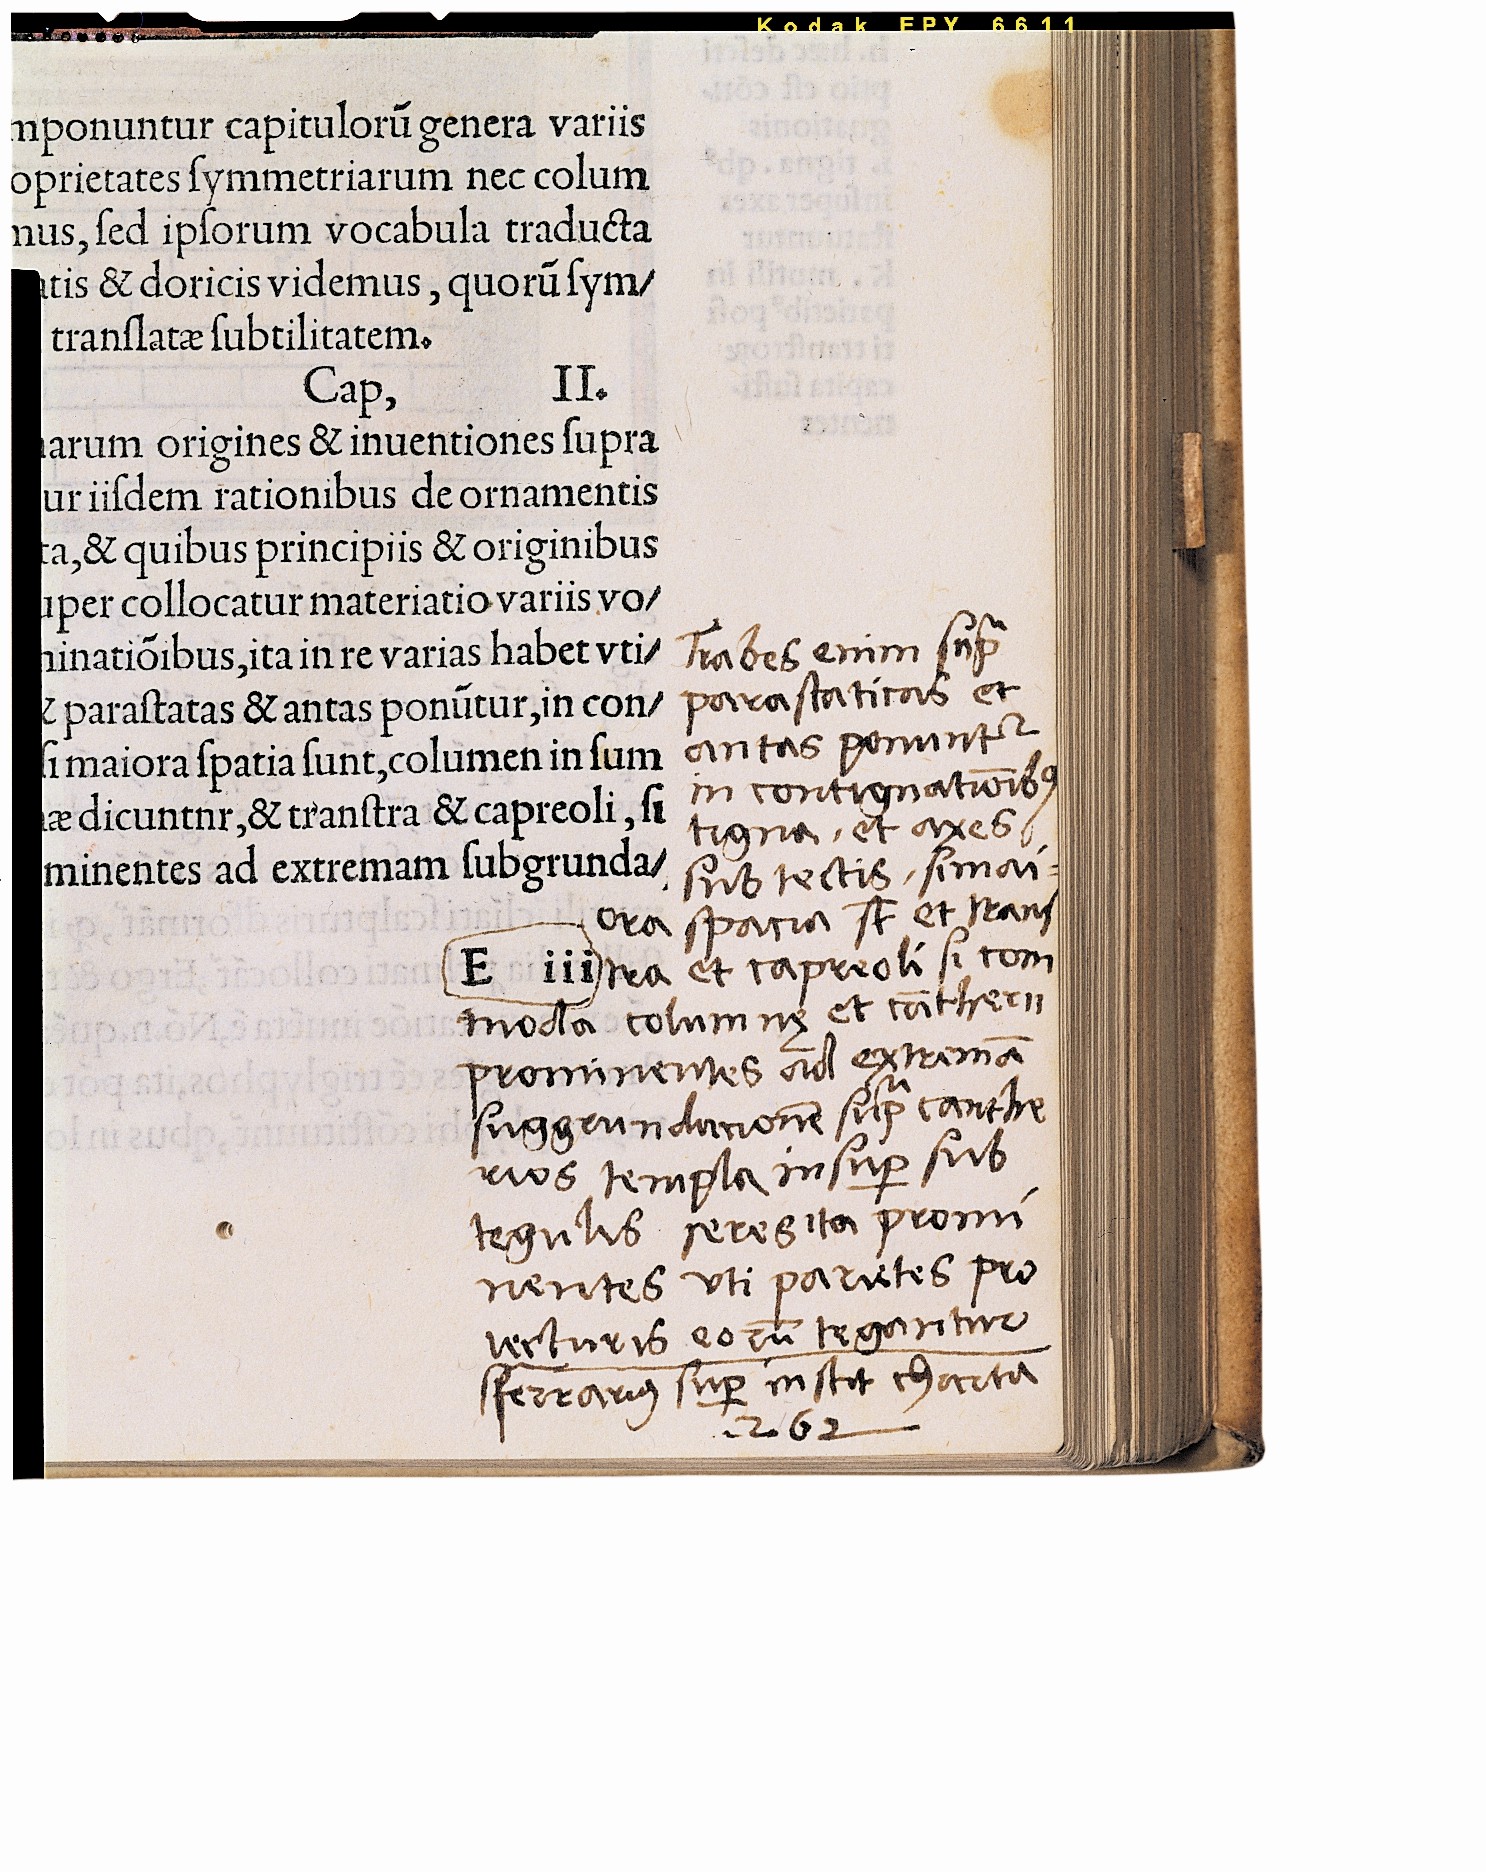 Kodak EPY 6611
mponuntur capitulorū genera variis
oprietates ſymmetriarum nec colum
nus, ſed ipſorum vocabula traducta
atis & doricis videmus , quorū ſym/
tranſlatæ ſubtilitatem.
Cap, II.
narum origines & inuentiones ſupra
ur iiſdem rationibus de ornamentis
ta,& quibus principiis & originibus
uper collocatur materiatio variis vo/
ninatiõibus,ita in re varias habet vti/
& paraſtatas & antas ponūtur,in con/
ſi maiora ſpatia ſunt,columen in ſum
næ dicuntnr,& tranſtra & capreoli , ſi
minentes ad extremam ſubgrunda/
E iii
Trabes enim supͣ
parastaticas et
antas ponuntur
in contignatiōibꝰ
tigna, et axes
sub tectis, si mai=
ora spacia st̄ et trans
tra et capreoli si com
moda columnę et cātherii
prominentes ad extremā
suggrundationē supͣ canthe
rios templa insup̲ sub
tegulis seres ita promi
nentes vti parietes pro
iecturis eorū tegantur
sup̲ charta
.262